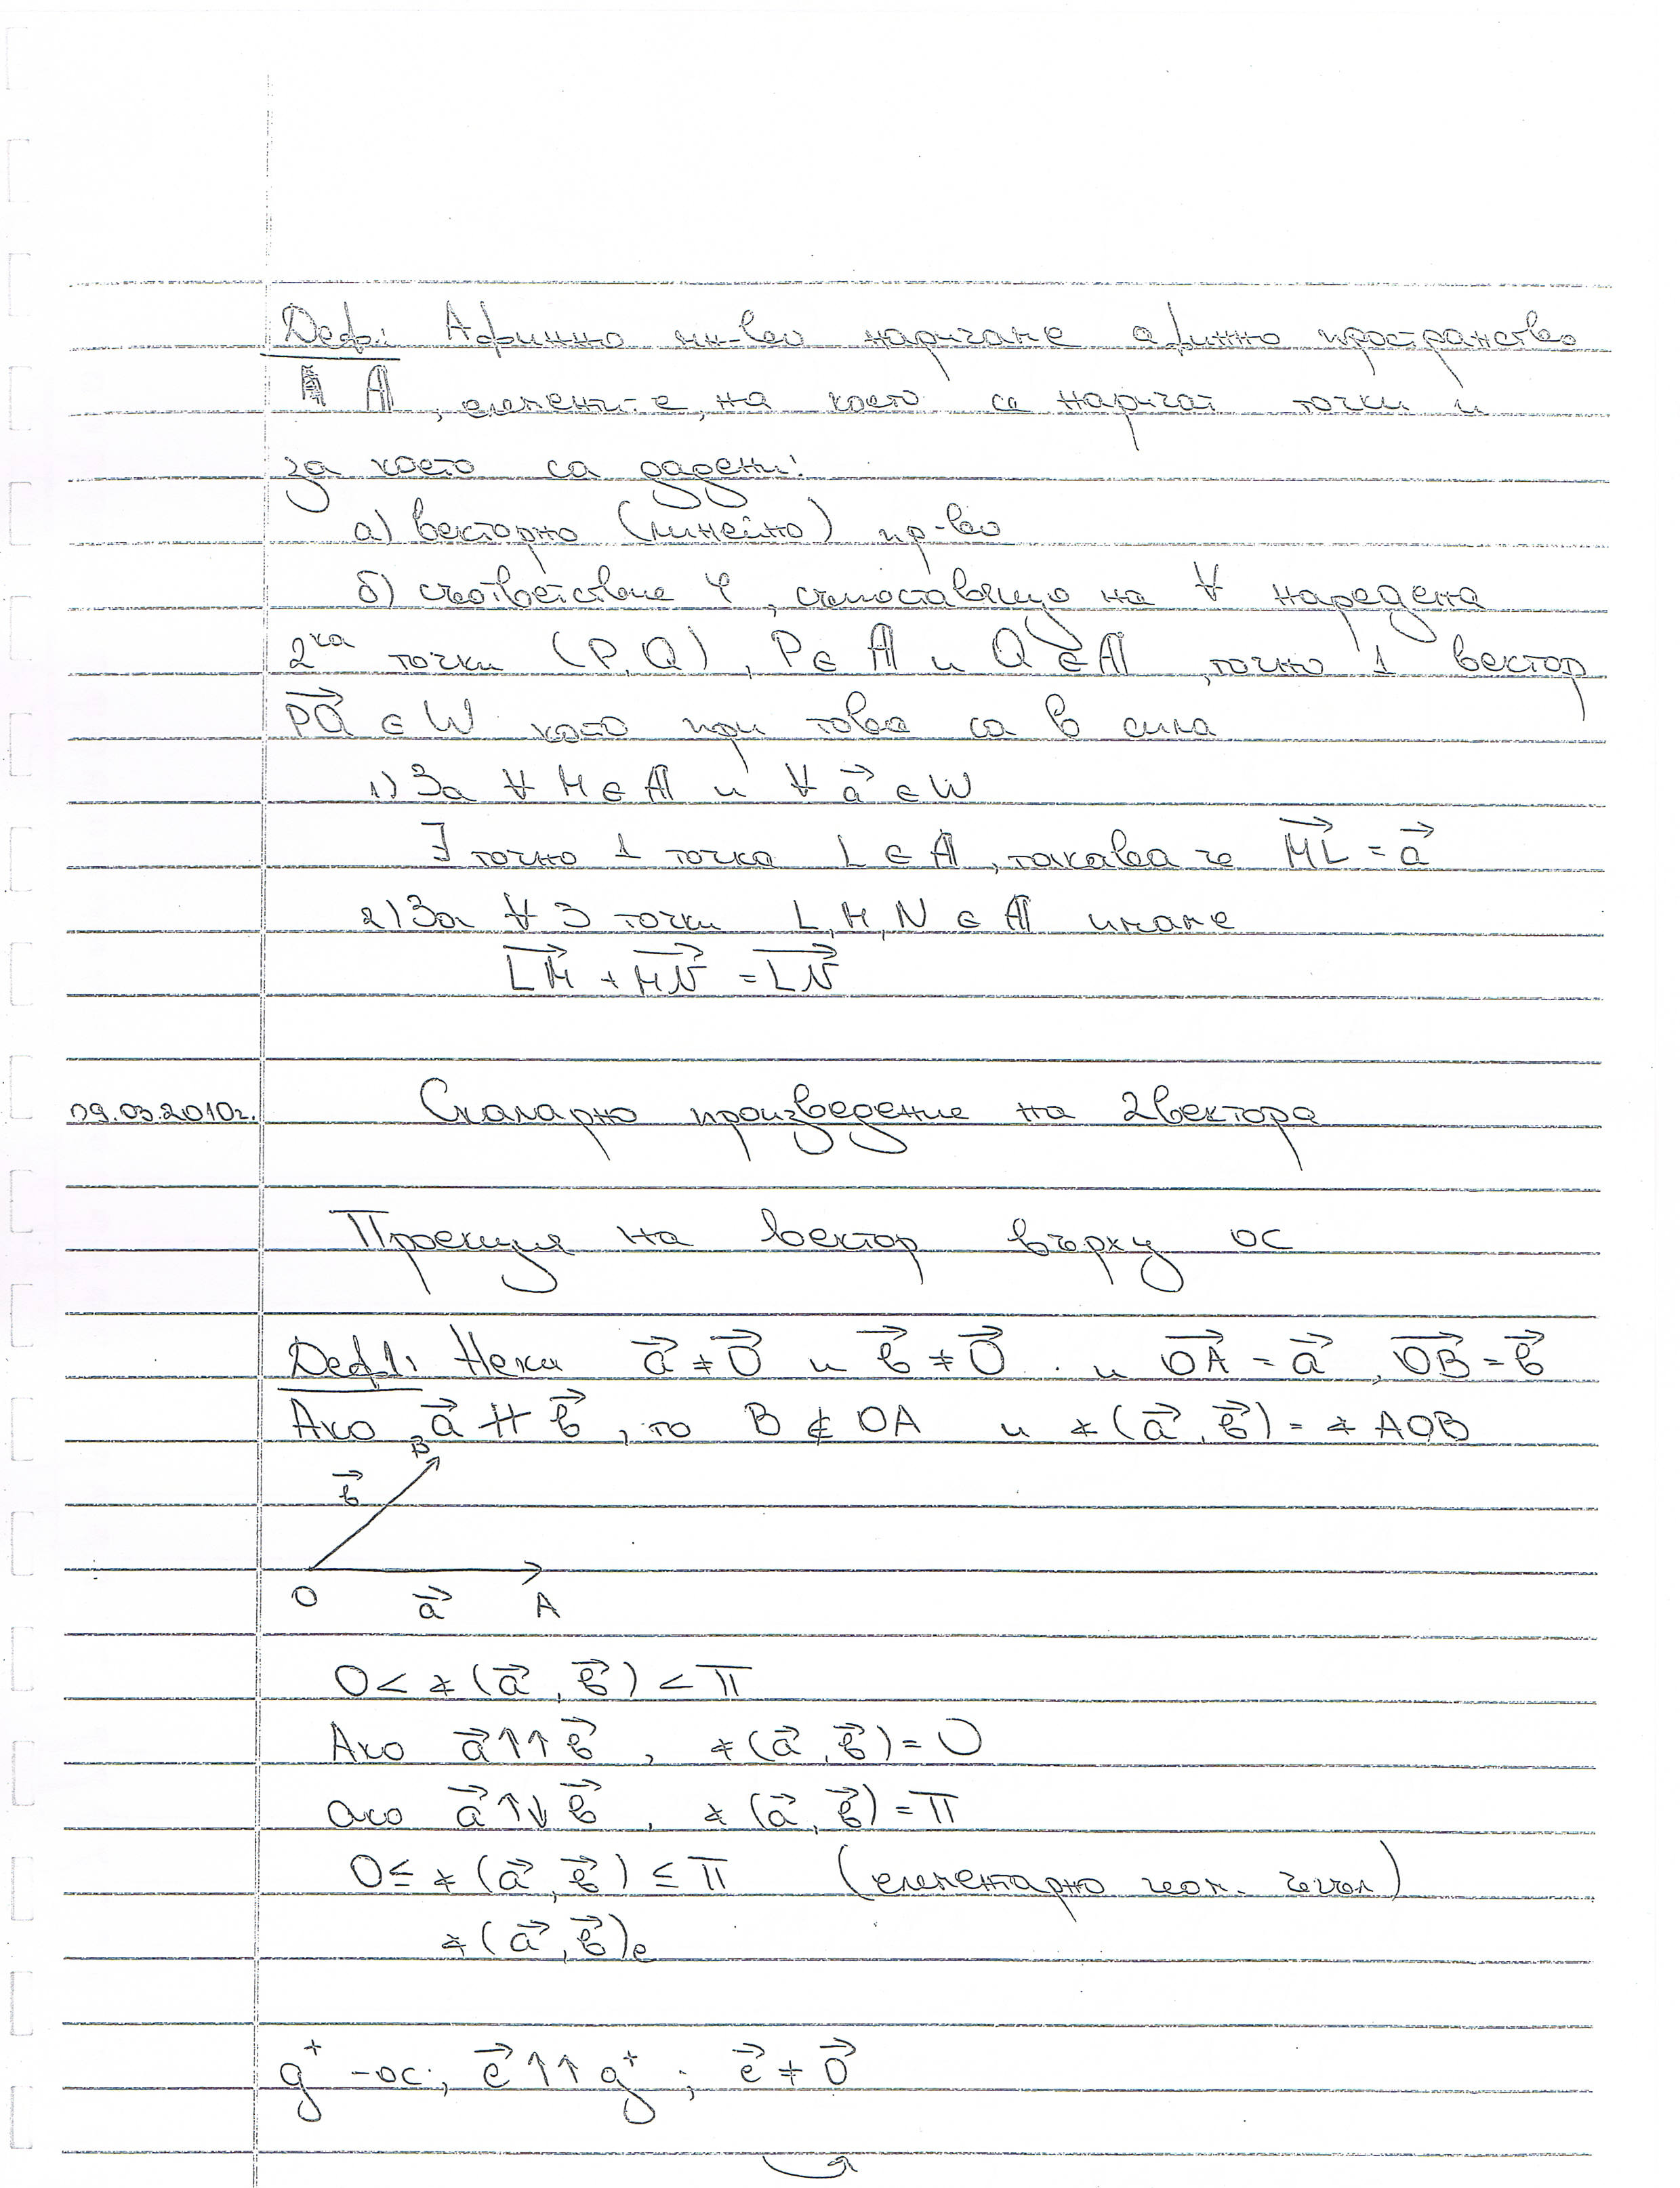 Деф: Афинно мн-во наричаме афинно пространство
𝔸, елементи-е, на което се наричат точки и
за което са дадени:
а) векторно (линейно) пр-во
б) съответствие φ, съпоставящо на ∀ наредена
2ка точки (P,Q), P∈𝔸 и Q∈𝔸, точно 1 вектор
PQ⃗ ∈ W като при това са в сила
1) За ∀ M∈𝔸 и ∀ a⃗ ∈W
∃ точно 1 точка L∈𝔸, такава че ML⃗ = a⃗
2) За ∀ 3 точки L,M,N ∈ 𝔸 имаме
LM⃗ + MN⃗ = LN⃗
09.03.2010г. Скаларно произведение на 2 вектора
Проекция на вектор върху ос
Деф1: Нека a⃗ ≠ 0⃗ и b⃗ ≠ 0⃗ и OA⃗ = a⃗, OB⃗ = b⃗
Ако a⃗ ∦ b⃗, то B ∉ OA и ∢(a⃗, b⃗) = ∢ AOB
B
b⃗
O a⃗ A
0 < ∢(a⃗, b⃗) < π
Ако a⃗ ↑↑ b⃗, ∢(a⃗, b⃗) = 0
ако a⃗ ↑↓ b⃗, ∢(a⃗, b⃗) = π
0 ≤ ∢(a⃗, b⃗) ≤ π (елементарно геом. ъгъл)
∢(a⃗, b⃗)e
g⁺ - ос; e⃗ ↑↑ g⁺; e⃗ ≠ 0⃗